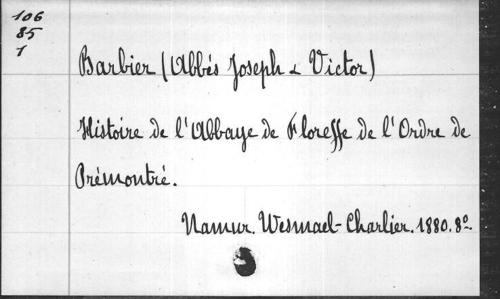 106
85
1
Barbier (Abbés Joseph & Victor)
Histoire de l'Abbaye de Floreffe de l'Ordre de
Prémontré.
Namur. Wesmael-Charlier. 1880. 8º.